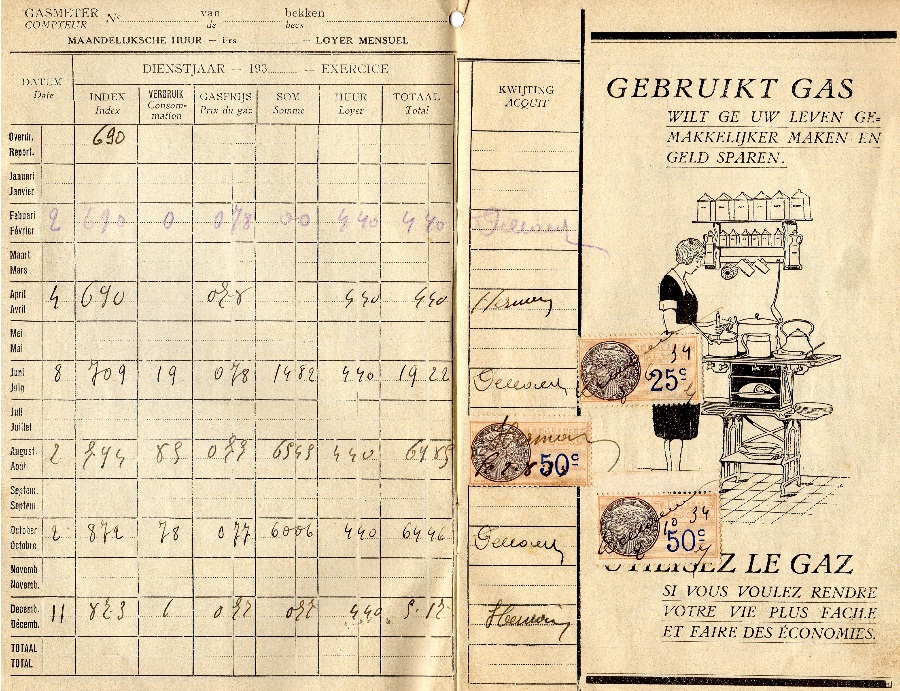 GASMETER No van bekken
COMPTEUR de becs
MAANDELIJKSCHE HUUR — Frs — LOYER MENSUEL
DATUM
Date
DIENSTJAAR — 193 — EXERCICE
INDEX VERBRUIK GASPRIJS SOM HUUR TOTAAL
Index Consommation Prix du gaz Somme Loyer Total
KWIJTING
ACQUIT
Overdr. 690
Report.
Januari
Janvier
Februari 2 690 0 078 00 440 440
Février
Maart
Mars
April 4 690 078 440 440
Avril
Mei
Mai
Juni 8 709 19 078 1482 440 1922
Juin
Juli
Juillet
August. 2 794 85 077 440
Août
Septem.
Septem.
October 2 872 78 077 6006 440 6446
Octobre
Novemb
Novemb.
Decemb. 11 873 1 077 077 440 5.17
Décemb.
TOTAAL
TOTAL
GEBRUIKT GAS
WILT GE UW LEVEN GE=
MAKKELIJKER MAKEN EN
GELD SPAREN.
34
25c
50c
10 34
50c
UTILISEZ LE GAZ
SI VOUS VOULEZ RENDRE
VOTRE VIE PLUS FACILE
ET FAIRE DES ÉCONOMIES.